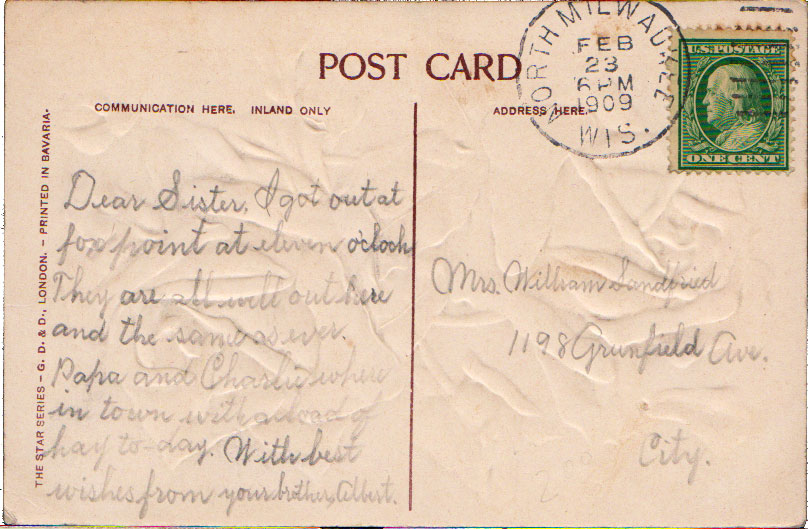 POST CARD
COMMUNICATION HERE. INLAND ONLY
ADDRESS HERE.
NORTH MILWAUKEE
FEB
23
6 PM
1909
WIS.
U.S. POSTAGE
ONE CENT
THE STAR SERIES – G. D. & D., LONDON. – PRINTED IN BAVARIA.
Dear Sister. I got out at
fox point at eleven o'clock
They are all well out here
and the same as ever.
Papa and Charlie where
in town with a load of
hay to-day. With best
wishes from your brother, Albert.
Mrs. William Landfried
1198 Grunfield Ave.
City.